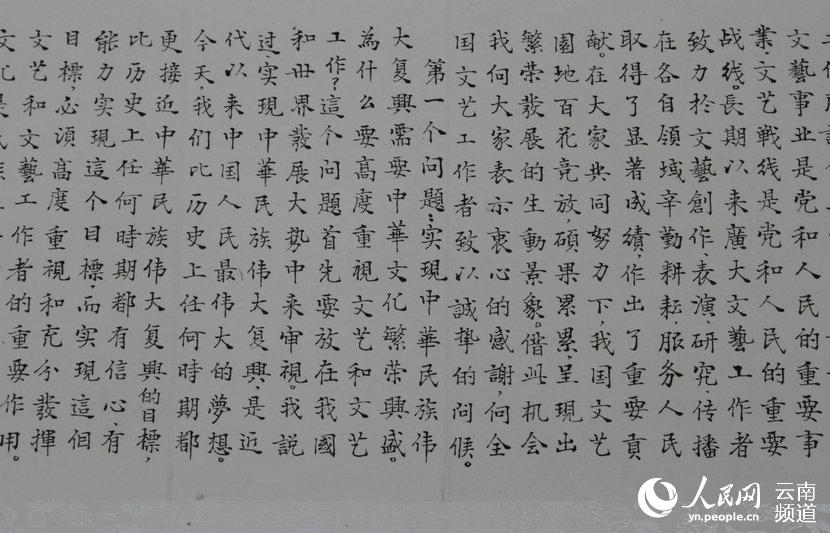 文藝事业是党和人民的重要事
業,文艺戦线是党和人民的重要
战线。長期以来廣大文藝工作者
致力於文藝創作、表演、研究、传播
在各自領域辛勤耕耘,服务人民
取得了显著成績,作出了重要貢
献。在大家共同努力下,我国文艺
園地百花竞放,碩果累累,呈現出
繁荣發展的生動景象。借此机会
我向大家表示衷心的感謝,向全
国文艺工作者致以誠挚的问候。
第一个问題:实現中華民族伟
大复興需要中華文化繁荣興盛。
為什么要高度重視文艺和文艺
工作?這个问題首先要放在我國
和世界發展大势中来审視。我説
过,实現中華民族伟大复興,是近
代以来中国人民最伟大的夢想。
今天,我们比历史上任何時期都
更接近中華民族伟大复興的目標,
比历史上任何時期都有信心、有
能力实現這个目標,而实現這個
目標,必須高度重視和充分發揮
文艺和文藝工作者的重要作用。
人民网 云南频道
yn.people.cn